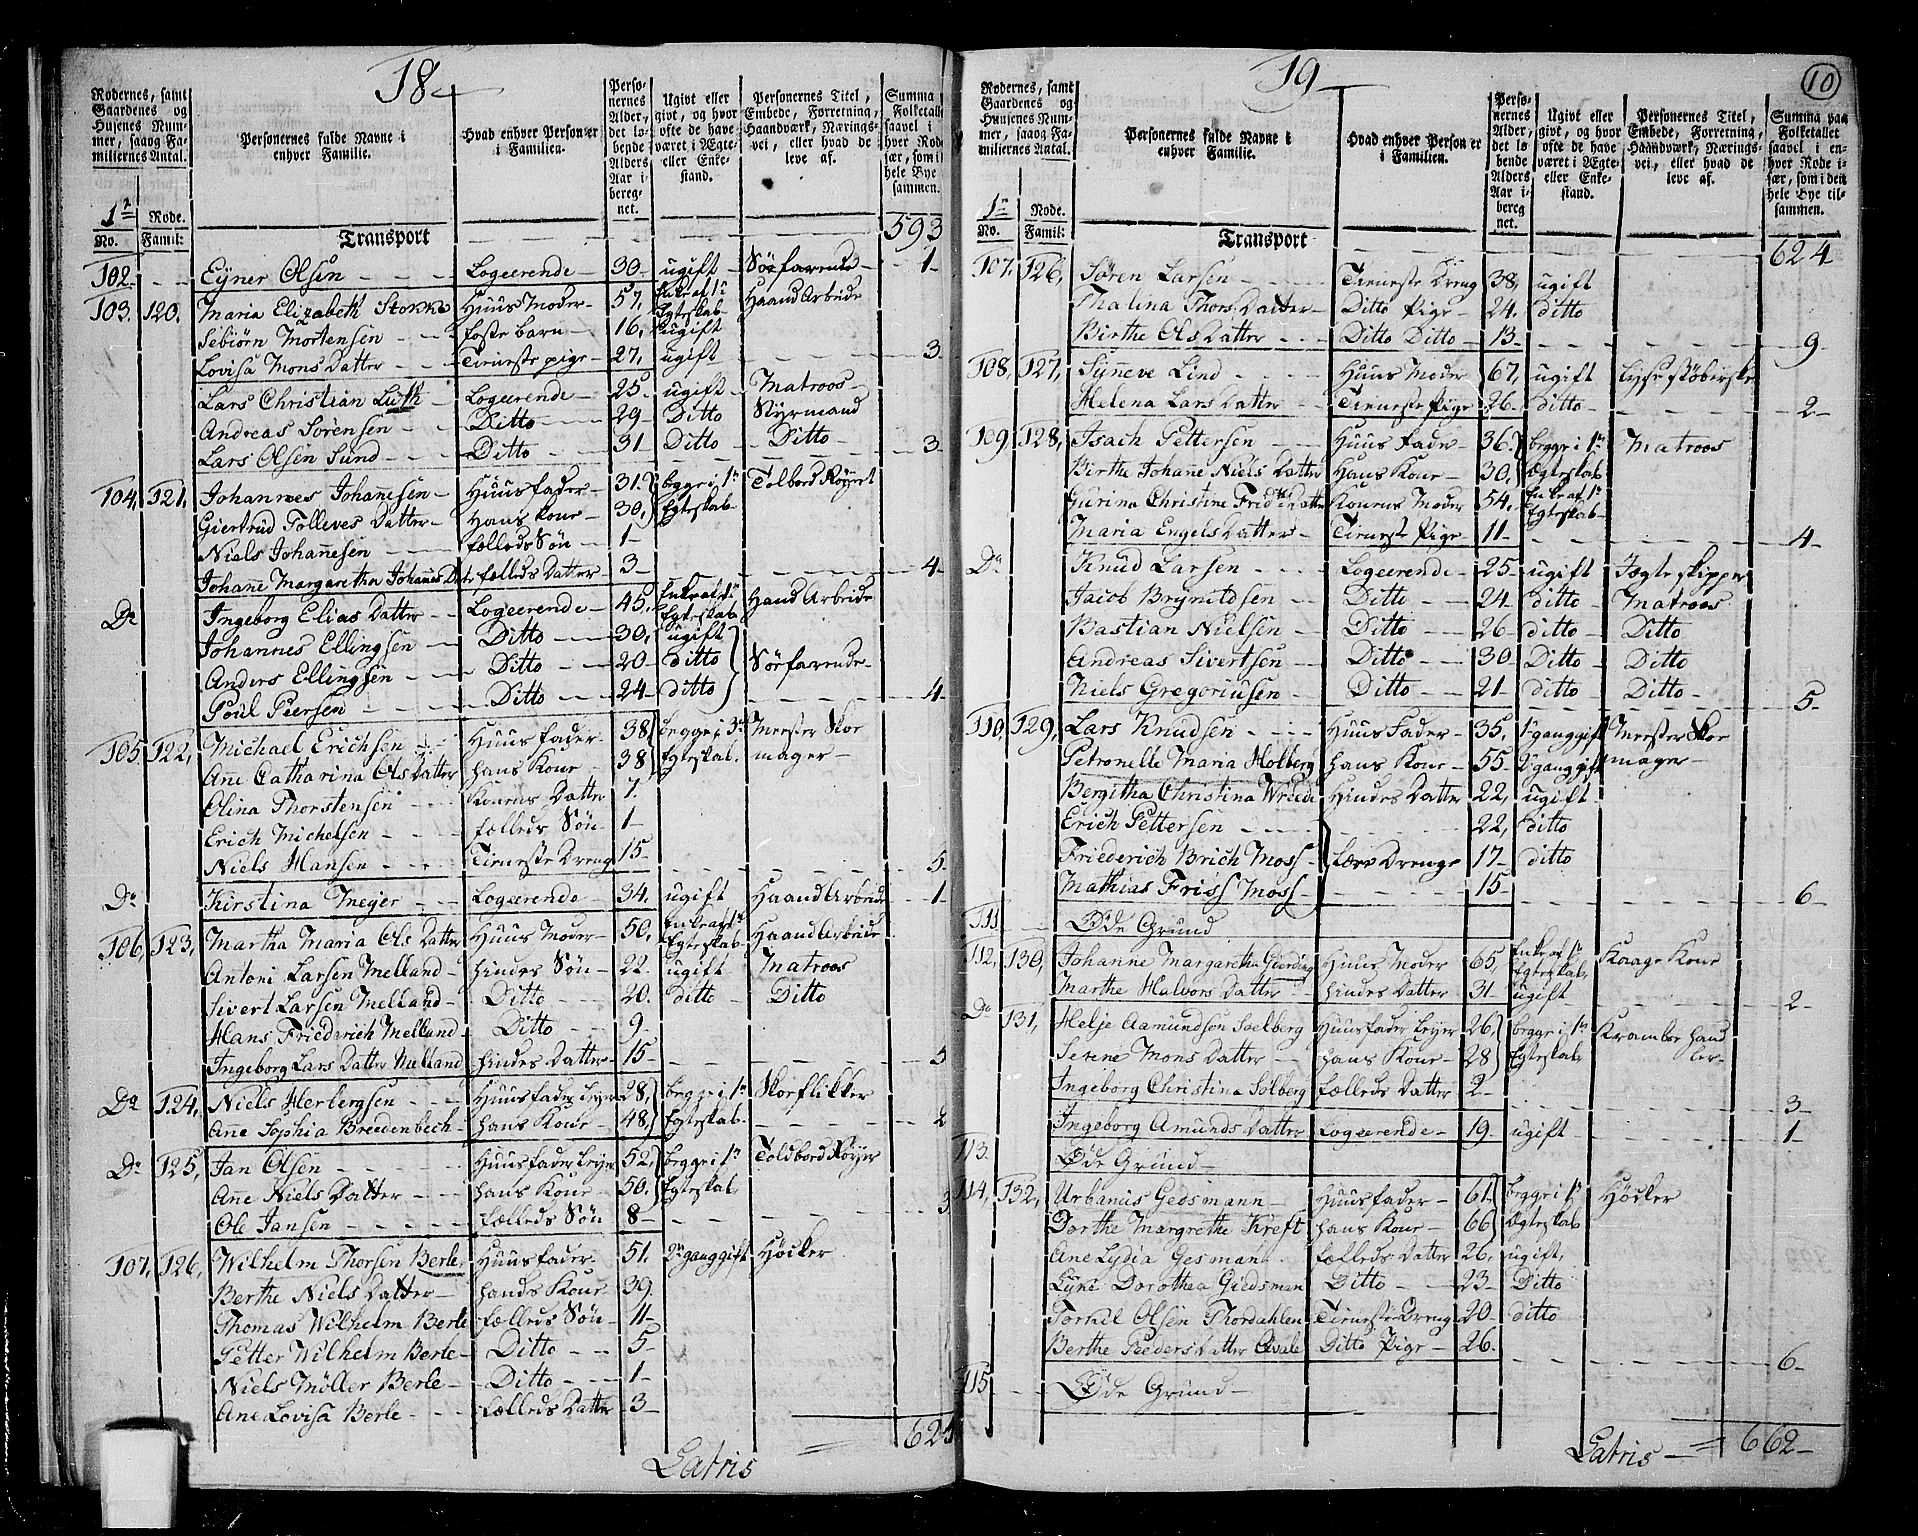 18
Rodernes, samt Gaardenes og Husenes Nummer, saaog Familiernes Antal.
Personernes fulde Navne i enhver Familie.
Hvad enhver Person er i Familien.
Personernes Alder, det løbende Alders Aar iberegnet.
Ugivt eller givt, og hvor ofte de have været i Ægte- eller Enkestand.
Personernes Titel, Embede, Forretning, Haandværk, Næringsvei, eller hvad de leve af.
Summa Folketallet saavel i hver Rode især, som i hele Bye sammen.
1te Rode.
No. Famil:
Transport 593
102. Eyner Olsen Logeerende 30 ugift Søefarende 1
103. 120. Maria Elizabeth Stokke Huus Moder 57, Enke af 1te Egteskab Haand Arbeide
Sebiörn Mortensen foste barn 16, ugift
Lovisa Mons Datter Tieneste pige 27, ugift 3
Lars Christian Luth Logeerende 25. ugift Matroos
Andreas Sörensen Ditto 29 Ditto Styrmand
Lars Olsen Sund Ditto 31 Ditto Ditto 3
104, 121, Johannes Johanesen Huusfader 31. begge i 1te Tolbod Røyert
Giertrud Tolleves Datter hans kone 30, Egteskab
Niels Johannesen fælleds Søn 1
Johane Margaretha Johanes Dat: fælleds Datter 3 4
Do Ingeborg Elias Datter Logeerende 45, Enke af 1te Egteskab Hand Arbeide
Johannes Ellingsen Ditto 30, ugift
Anders Ellingsen Ditto 20 ditto Søefarende
Poul Peersen Ditto 24 ditto 4
105, 122, Michael Erichsen Huusfader 38 begge i 3de Mester Skoe
Ane Catharina Ols Datter hans Kone 38 Egteskab. mager
Olina Thorstensen Konens Datter 7.
Erich Michelsen fælleds Søn 1
Niels Hansen Tieneste Dreng 15 5
Do Kirstina Meyer Logeerende 34. ugift Haand Arbeide 1
106, 123, Martha Maria Ols Datter Huus Moder 50, Enke af 1te Egteskab Haand Arbeide
Antoni Larsen Melland hindes Søn 22. ugift Matroos
Sivert Larsen Melland Ditto 20. ditto Ditto
Hans Friederich Melland Ditto 9
Ingeborg Lars Datter Melland hindes Datter 15 5
Do 124, Niels Herbergsen Huusfader Leyer 28, begge i 1te Skoeflikker
Ane Sophia Breedenbech hans Kone 48, Egteskab 2
Do 125, Jan Olsen Huusfader Leyer 52, begge i 1te Toldbod Røyer
Ane Niels Datter hans Kone 50. Egteskab
Ole Jansen fælleds Søn 8 3
107, 126, Wilhelm Thorsen Berle Huusfader 51. 2den gang gift Høcker
Berthe Niels Datter hands Kone 39.
Thomas Wilhelm Berle fælleds Søn 11
Petter Wilhelm Berle Ditto 5
Niels Möller Berle Ditto 1
Ane Lovisa Berle fælleds Datter 3
Latris 624
19
10
Rodernes, samt Gaardenes og Huusenes Nummer, saaog Familiernes Antal.
Personernes fulde Navne i enhver Familie.
Hvad enhver Person er i Familien.
Personernes Alder, det løbende Alders Aar iberegnet.
Ugivt eller givt, og hvor ofte de have været i Ægte- eller Enkestand.
Personernes Titel, Embede, Forretning, Haandværk, Næringsvei, eller hvad de leve af.
Summa paa Folketallet saavel i enhver Rode især, som i den hele Bye tilsammen.
1te Rode.
No. Famil:
Transport 624
107. 126, Søren Larsen Tieneste Dreng 38, ugift
Malina Thors Datter Ditto Pige 24. ditto
Birthe Ols Datter Ditto Ditto 13 9
108, 127, Synneve Lind Huus Moder 67, ugift lysestøberske
Helena Lars Datter Tieneste Pige 26 ditto 2
109 128, Isach Pettersen Huus Fader 36. begge i 1te Matroos
Birthe Johane Niels Datter Hans Kone 30, Egteskab
Gurina Christine Fridr: Datter Konens Moder 54, Enke af 1te Egteskab
Maria Engels Datter Tieneste Pige 11 4
Do Knud Larsen Logeerende 25 ugift Jægte skipper
Jacob Brynildsen Ditto 24 ditto Matroos
Bastian Nielsen Ditto 26 ditto Ditto
Andreas Sivertsen Ditto 30 Ditto Ditto
Niels Gregoriusen Ditto 21 ditto Ditto 5
110, 129, Lars Knudsen Huus Fader 35, 1te gang gift Mester Skoe
Petronelle Maria Holberg hans Kone 55 2den gang gift mager
Bergitha Christina Wrede Hindes Datter 22, ugift
Erich Pettersen 22, ditto
Friederich Brich Moss Lære Drenge 17 ditto
Mathias Friss Moss 15 6
111 Øde Grund
112, 130, Johanne Margaretha Giording Huus Moder 65, Enke af 1te Egteskab Kaage Kone
Marthe Halvors Datter hindes Datter 31 ugift 2
Do 131, Helje Aamundsøn Soelberg Huusfader Leyer 26, begge i 1te Kramboe hand
Serene Mons Datter hans Kone 28 Egteskab ler
Ingeborg Christina Solberg fælleds Datter 2 3
Ingeborg Amunds Datter Logeerende 19 ugift 1
113. Øde Grund
114, 132, Urbanus Gedsmann Huusfader 61. begge i 1te Høcker
Dorthe Margrethe Kreft hans Kone 66 Egteskab
Ane Lydia Gesman fælleds Datter 26, ugift,
Lyne Dorothea Giedsman Ditto 23 Ditto
Torkel Olsen Thordahlen Tieneste Dreng 20 ditto
Berthe Peeders Datter Qvale Ditto Pige 26. 6
115 Øde Grund
Latris 662